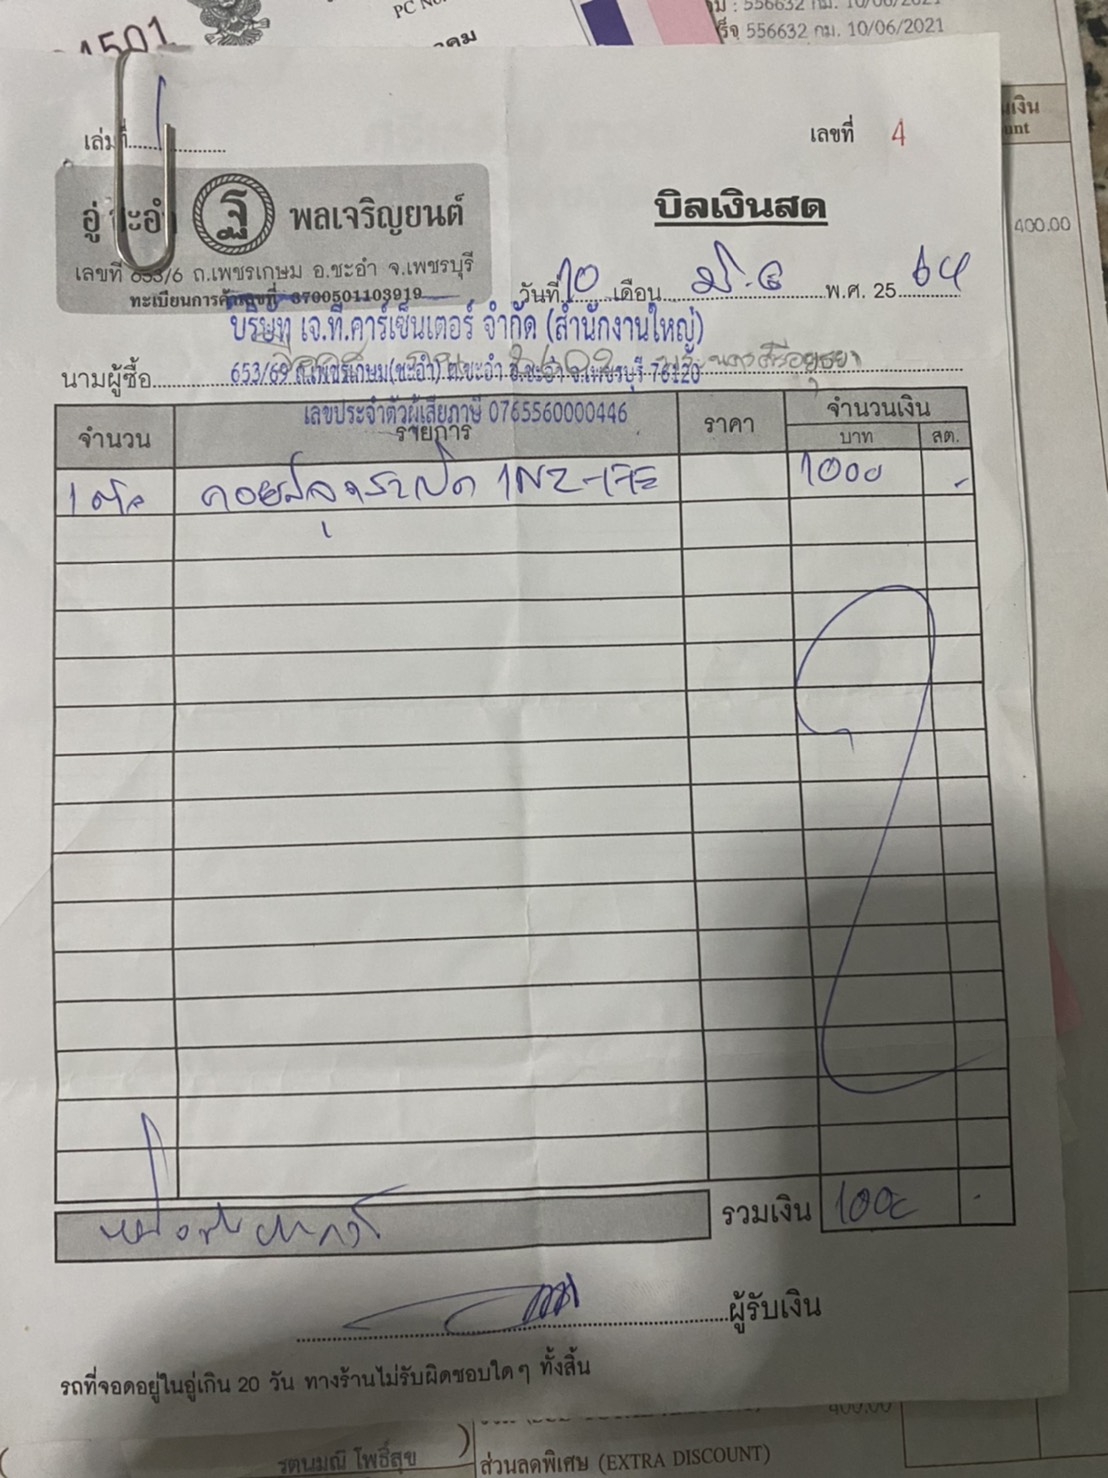 PC No.
4501
556632 กม. 10/06/2021
556632 กม. 10/06/2021
เล่มที่ 1
เลขที่ 4
อู่ ชะอำ ฐ พลเจริญยนต์
บิลเงินสด
400.00
เลขที่ 653/6 ถ.เพชรเกษม อ.ชะอำ จ.เพชรบุรี
ทะเบียนการค้าเลขที่ 3700501103919
วันที่ 10 เดือน มิ.ย พ.ศ. 25 64
บริษัท เจ.ที.คาร์เซ็นเตอร์ จำกัด (สำนักงานใหญ่)
653/69 ถ.เพชรเกษม(ชะอำ) ต.ชะอำ อ.ชะอำ จ.เพชรบุรี 76120
นามผู้ซื้อ
เลขประจำตัวผู้เสียภาษี 0765560000446
จำนวน รายการ ราคา จำนวนเงิน
บาท สต.
1 ตัว คอยล์จุดระเบิด 1NZ-FE 1000 -
รวมเงิน 1000 -
ผู้รับเงิน
รถที่จอดอยู่ในอู่เกิน 20 วัน ทางร้านไม่รับผิดชอบใดๆ ทั้งสิ้น
400.00
รตนมณี โพธิ์สุข
ส่วนลดพิเศษ (EXTRA DISCOUNT)